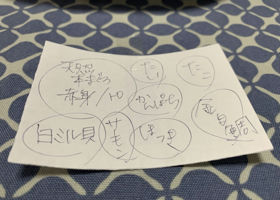 天然
本まぐろ
赤身/トロ
たい
たこ
かんぱち
金目鯛
白ミル貝
サーモン
ほっき